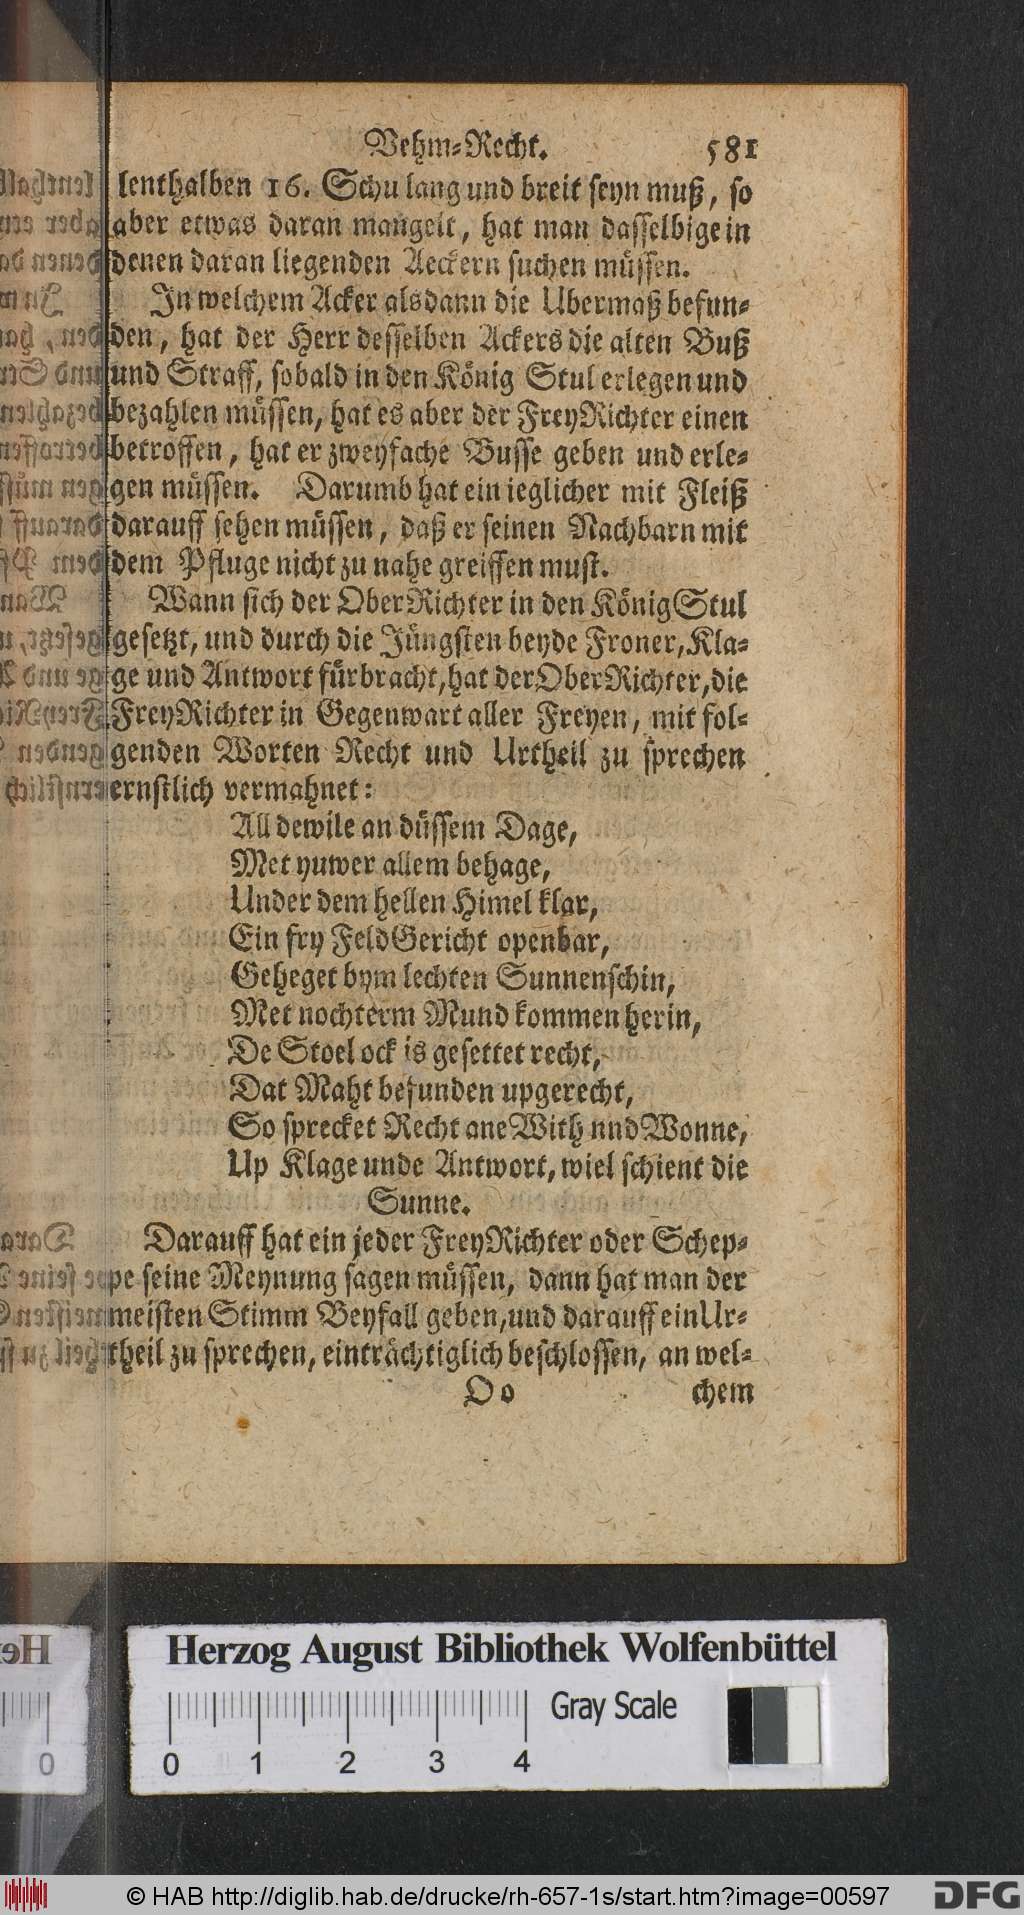 Vehm-Recht. 581
lenthalben 16. Schu lang und breit seyn muß, so
aber etwas daran mangelt, hat man dasselbige in
denen daran liegenden Aeckern suchen müssen.
In welchem Acker alsdann die Ubermaß befun-
den, hat der Herr desselben Ackers die alten Buß
und Straff, sobald in den König Stul erlegen und
bezahlen müssen, hat es aber der FreyRichter einen
betroffen, hat er zweyfache Busse geben und erle-
gen müssen. Darumb hat ein ieglicher mit Fleiß
darauff sehen müssen, daß er seinen Nachbarn mit
dem Pfluge nicht zu nahe greiffen must.
Wann sich der OberRichter in den KönigStul
gesetzt, und durch die Jüngsten beyde Froner, Kla-
ge und Antwort fürbracht, hat der OberRichter, die
FreyRichter in Gegenwart aller Freyen, mit fol-
genden Worten Recht und Urtheil zu sprechen
ernstlich vermahnet:
All dewile an düssem Dage,
Met yuwer allem behage,
Under dem hellen Himel klar,
Ein fry FeldGericht openbar,
Geheget bym lechten Sunnenschin,
Met nochterm Mund kommen herin,
De Stoel ock is gesettet recht,
Dat Maht befunden upgerecht,
So sprecket Recht ane With nnd Wonne,
Up Klage unde Antwort, wiel schient die
Sunne.
Darauff hat ein jeder FreyRichter oder Schep-
pe seine Meynung sagen müssen, dann hat man der
meisten Stimm Beyfall geben, und darauff ein Ur-
theil zu sprechen, einträchtiglich beschlossen, an wel-
Oo chem
Herzog August Bibliothek Wolfenbüttel
Gray Scale
0 1 2 3 4
© HAB http://diglib.hab.de/drucke/rh-657-1s/start.htm?image=00597
DFG